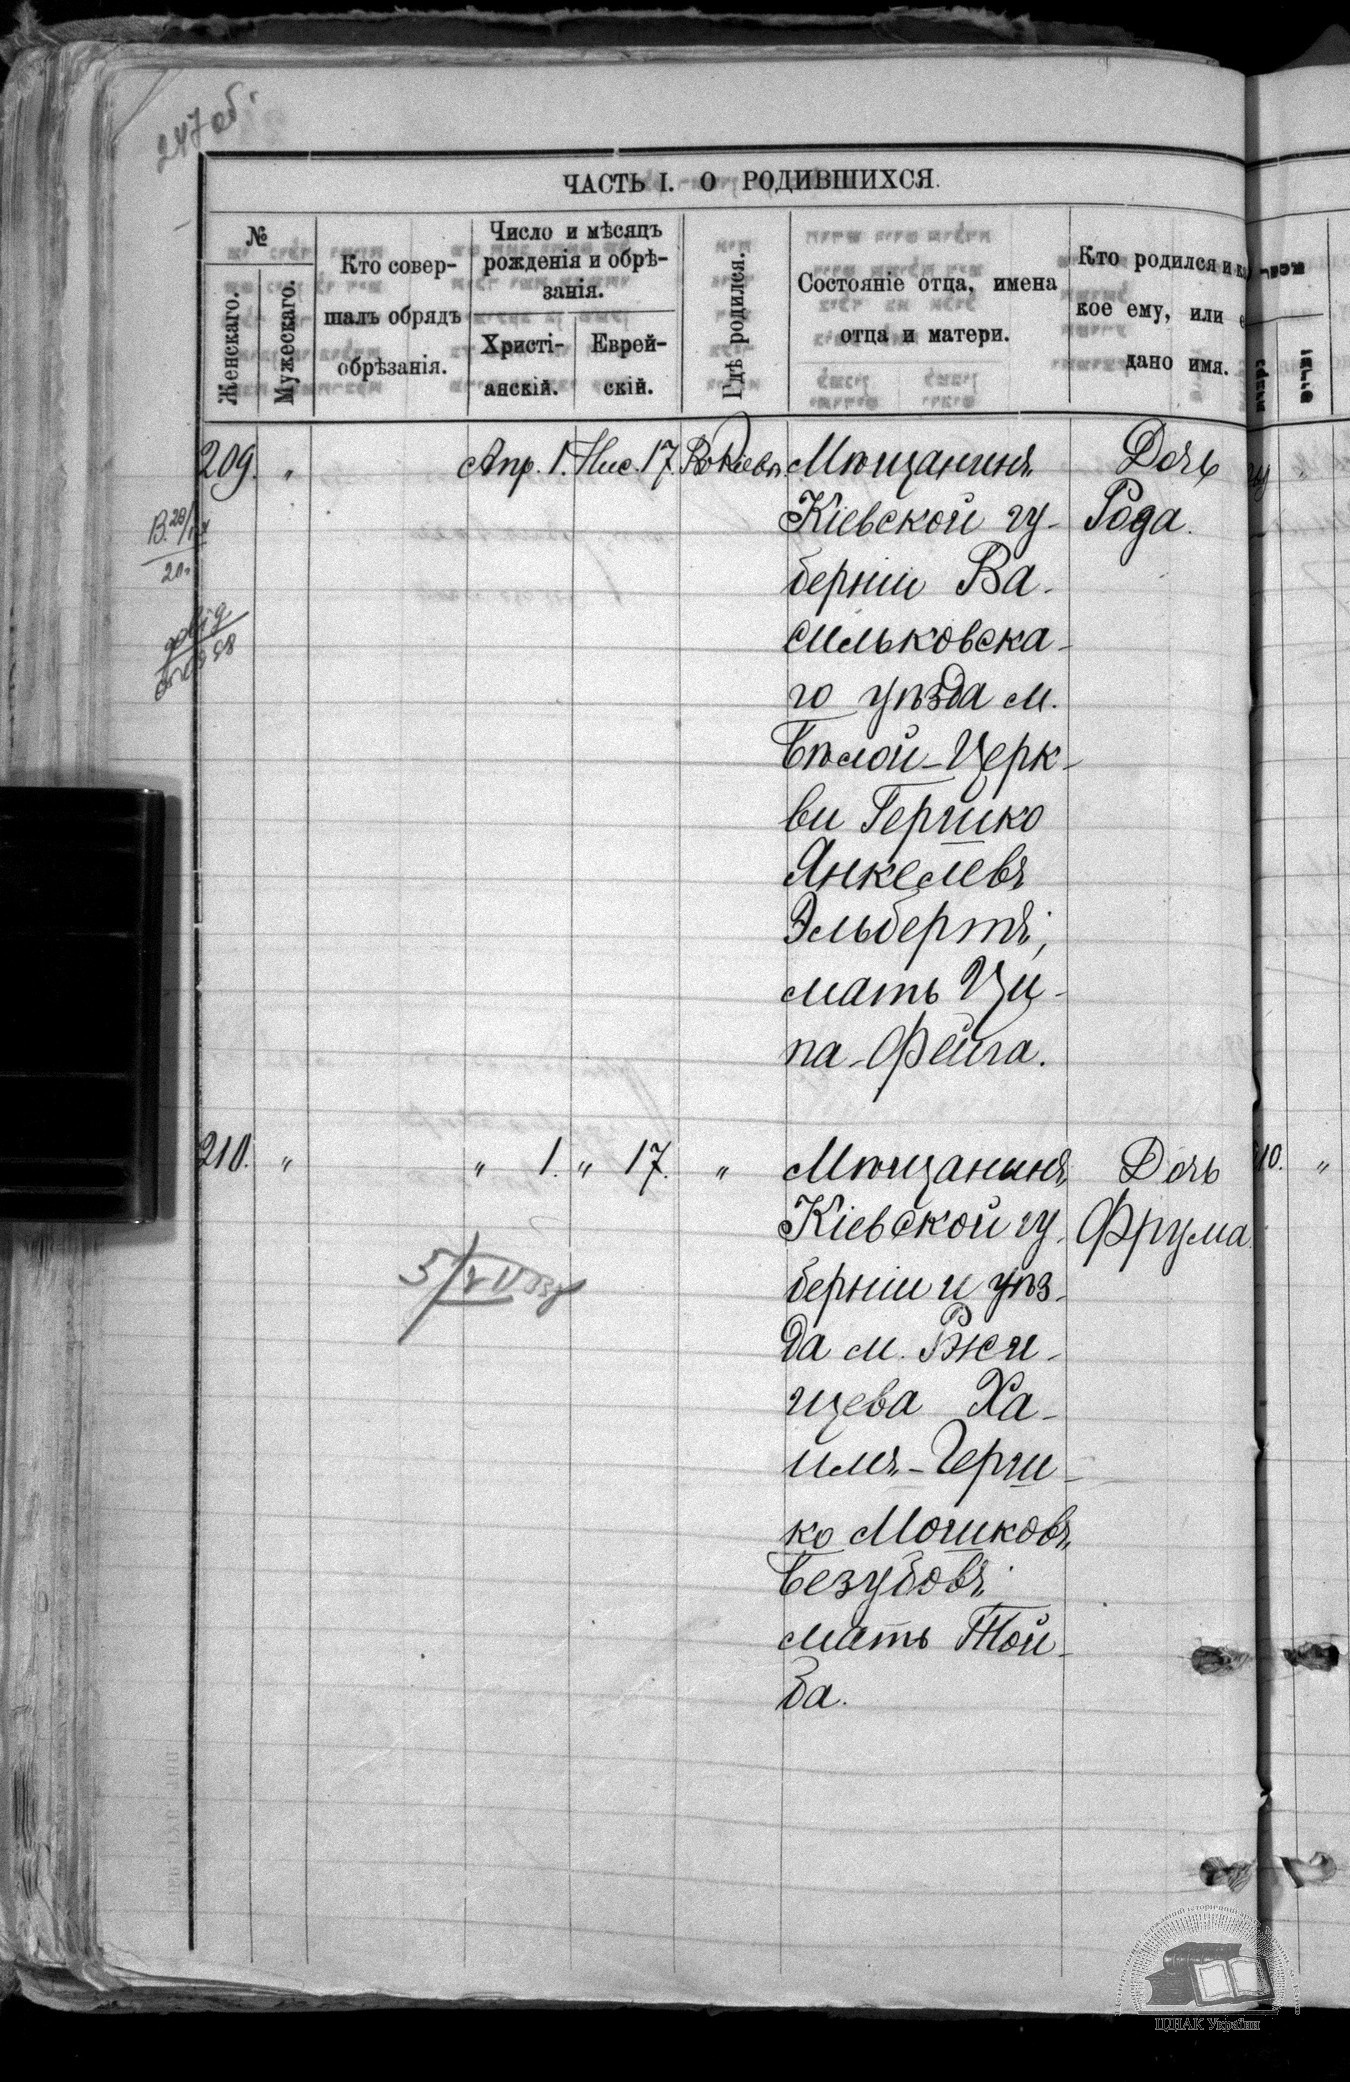 247 об.
ЧАСТЬ I. О РОДИВШИХСЯ.
№
Женскаго.
Мужескаго.
Кто совер-
шалъ обрядъ
обрѣзанія.
Число и мѣсяцъ
рожденія и обрѣ-
занія.
Христі-
анскій.
Еврей-
скій.
Гдѣ родился.
Состояніе отца, имена
отца и матери.
Кто родился и ка
кое ему, или е
дано имя.
209. „ Апр. 1. Нис. 17. Въ Кіевѣ. Мѣщанинъ Дочь
Кіевской гу- Рода.
берніи Ва-
сильковска-
го уѣзда м.
Бѣлой-Церк-
ви Гершко
Янкелевъ
Эльбертъ;
мать Ци-
па-Фейга.
210. „ „ 1. „ 17. „ Мѣщанинъ Дочь
Кіевской гу- Фрума.
берніи и уѣз-
да м. Ржи-
щева Ха-
имъ-Герш-
ко Мошковъ
Беззубовъ;
мать Той-
ба.
210. „
ЦДІАК України